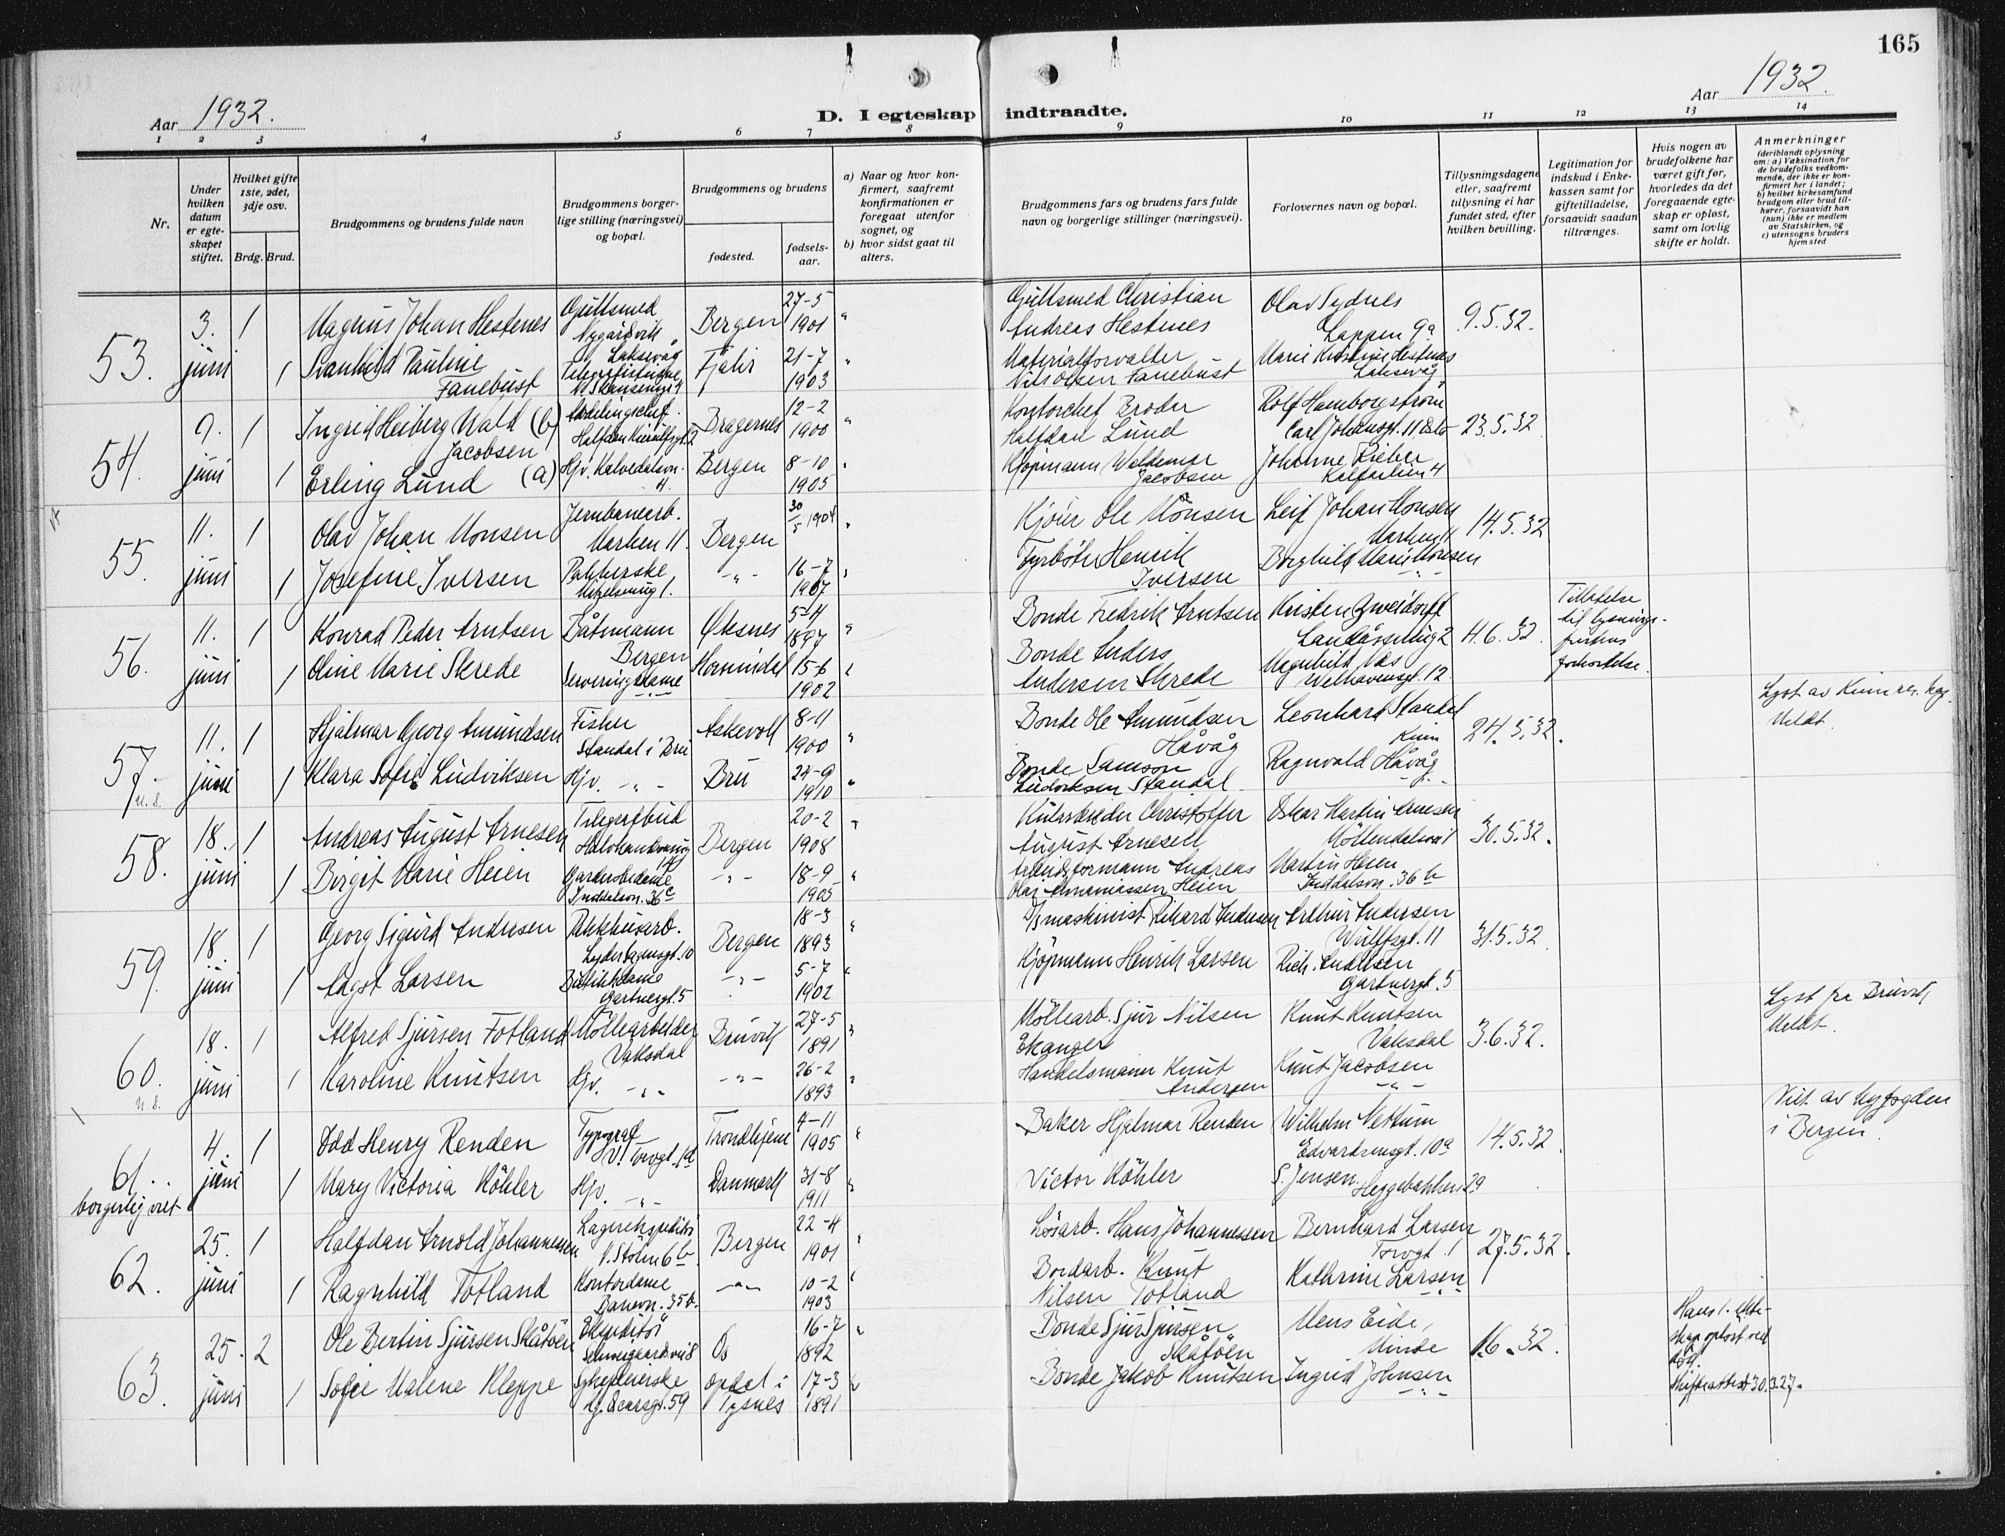 165
Aar 1932.
D. I egteskap indtraadte.
Aar 1932.
1 2 3 4 5 6 7 8 9 10 11 12 13 14
Nr.
Under hvilken datum er egteskapet stiftet.
Hvilket gifte 1ste, 2det, 3dje osv.
Brdg. Brud.
Brudgommens og brudens fulde navn
Brudgommens borgerlige stilling (næringsvei) og bopæl.
Brudgommens og brudens
fødested.
fødselsaar.
a) Naar og hvor konfirmert, saafremt konfirmationen er foregaat utenfor sognet, og
b) hvor sidst gaat til alters.
Brudgommens fars og brudens fars fulde navn og borgerlige stillinger (næringsvei).
Forlovernes navn og bopæl.
Tillysningsdagene eller, saafremt tillysning ei har fundet sted, efter hvilken bevilling.
Legitimation for indskud i Enkekassen samt for giftetilladelse, forsaavidt saadan tiltrænges.
Hvis nogen av brudefolkene har været gift før, hvorledes da det foregaaende egteskap er opløst, samt om lovlig skifte er holdt.
Anmerkninger (deriblandt oplysning om: a) Vaksination for de brudefolks vedkommende, der ikke er konfirmert her i landet; b) hvilket kirkesamfund brudgom eller brud tilhører, forsaavidt han (hun) ikke er medlem av Statskirken, og c) utensogns bruders hjemsted
53. 3. juni 1 Magnus Johan Hestenes Gullsmed Nygårdsvik Laksevåg Bergen 27-5 1901 Gullsmed Christian Andreas Hestenes Olav Sydnes Lappen 9a 9.5.32.
1 Svanhild Pauline Fanebust 21-7 1903 Materialforvalter Fanebust Marie Kristine Hestenes Laksevåg
54. 9. juni 1 Ingrid Heiberg Wald Jacobsen (b) Avdelingschef. 12-2 1900 Kontorchef Broder Halfdan Lund Rolf Hamborgstrøm Carl Johansgt. 11 Oslo 23.5.32
1 Erling Lund (a) Hjv. Kalvedalsvn. 4. Bergen 8-10 1905 Kjøpmann Waldemar Jacobsen Johanne Rieber Kalfarlien 4
55. 11. juni 1 Olav Johan Monsen Jernbanearb. Marken 11. Bergen 30/5 1904 Kjører Ole Monsen Leif Johan Monsen Marken 11 14.5.32
1 Josefine Iversen Pakkerske 16-7 1907 Fyrbøter Henrik Iversen Borghild Marie Monsen
56. 11. juni 1 Konrad Peder Arntsen Båtsmann Bergen Øksnes 5-4 1897 Bonde Fredrik Arntsen Kristen Zweidorff Landåssving 2 4.6.32. Tillatelse til lysnings-fristens forkortelse.
1 Oline Marie Skrede Serveringsdame Hornindal 15-6 1902 Bonde Anders Andersen Skrede Magnhild Næs Welhavensgt. 12
57. u.s. 11. juni 1 Hjalmar Georg Amundsen Fisker Standal i Bru Askevoll 8-11 1900 Bonde Ole Amundsen Håvåg Leonhard Standal Kinn 24.5.32. Lyst av Kinn res. kap. Meldt.
1 Klara Sofie Ludviksen Hjv. Bru 24-9 1910 Bonde Samson Ludviksen Standal Ragnvald Håvåg
58. 18. juni 1 Andreas August Arnesen Telegrafbud Bergen 20-2 1908 Christoffer August Arnesen Oskar Martin Arnesen Möllendalsvei 30.5.32.
1 Birgit Marie Heien Garderobedame Inddalsvn. 36c 18-9 1905 Arbeidsformann Andreas Olai Ananiassen Heien Martin Heien Inddalsvn. 36b
59. 18. juni 1 Georg Sigurd Andersen Pakkhusarb. Lyder Sagensgt. 10 Bergen 18-3 1893 maskinist Rikard Andersen Arthur Andersen Wolffsgt. 11 31.5.32
1 Aagot Larsen Butikkdame Gartnergt. 5 5-7 1902 Kjøpmann Henrik Larsen Rich. Andersen Gartnergt. 5
60. u.s. 18. juni 1 Alfred Sjursen Fotland Möllearbeider Vaksdal Bruvik 27-5 1891 Möllearb. Sjur Nilsen Ekanger Knut Knutsen Vaksdal 3.6.32. Lyst fra Bruvik, Meldt.
1 Karoline Knutsen Hjv. 26-2 1893 Handelsmann Knut Andersen Knut Jacobsen
61. borgerlig viet 4. juni 1 Odd Henry Renden Typograf V. Torvgt. 1d Trondhjem 4-11 1905 Baker Hjalmar Renden Wilhelm Nettum Edvardsensgt. 10a 14.5.32 Viet av byfogden i Bergen.
1 Mary Victoria Köhler Hjv. Danmark 31-8 1911 Victor Köhler S. Jensen Heggebakken 29
62. 25. juni 1 Halfdan Arnold Johannessen Lagerekspeditör V. Stölen 6b Bergen 22-4 1901 Lösarb. Hans Johannessen Bernhard Larsen Torvgt. 1 27.5.32.
1 Ragnhild Totland Kontordame Damsv. 35b. 10-2 1903 Bordarb. Knut Nilsen Totland Kathrine Larsen
63. 25. juni 2 Ole Bertin Sjursen Skåtöen Ekspeditör Schweigaardsvei 8 Os 16-7 1892 Bonde Sjur Sjursen Skåtöen Mons Eide, Minde 1.6.32. Hans 1. ekteskap oplöst ved död. Skifteattest 30.3.27.
1 Sofie Malene Kleppe Sykepleierske Opdal i Tysnes 17-3 1891 Bonde Jakob Knutsen Ingrid Johnsen